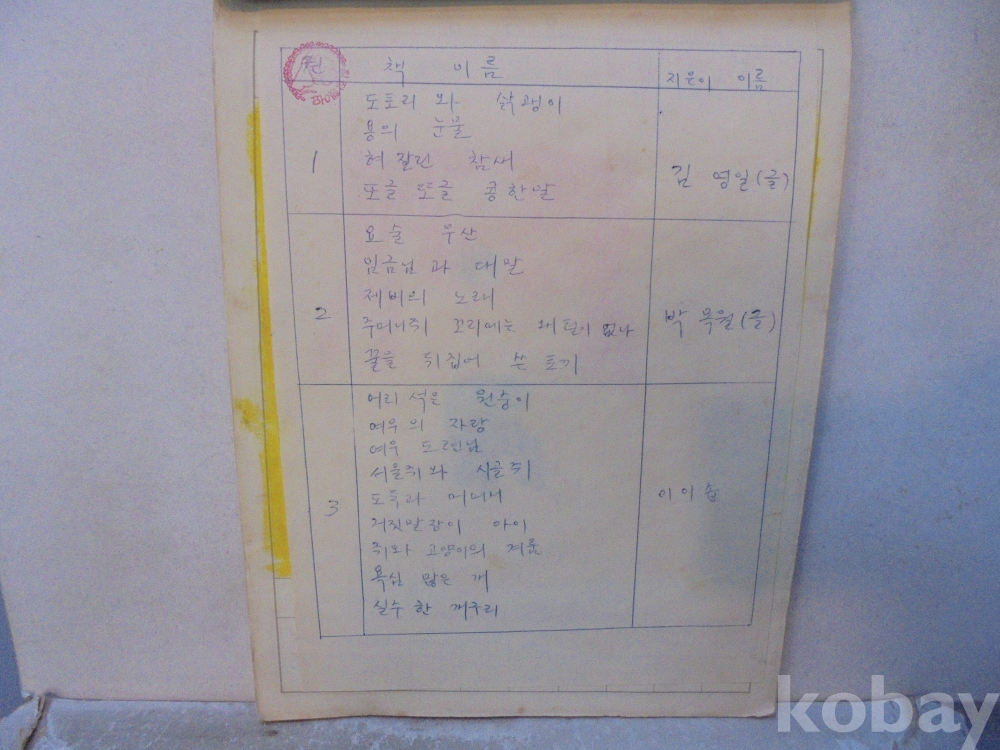 책 이름 지은이 이름
1
도토리 와 삵괭이
용의 눈물
혀 잘린 참새
또글 또글 콩한알
김 영일(글)
2
요술 우산
임금님 과 대말
제비의 노래
주머니쥐 꼬리에는 왜 털이 없나
꿀을 뒤집어 쓴 토끼
박 목월(글)
3
어리석은 원숭이
여우의 자랑
여우 도련님
서울쥐와 시골쥐
도둑과 어머니
거짓말장이 아이
쥐와 고양이의
욕심 많은 개
실수 한 까우리
이이솝
kobay